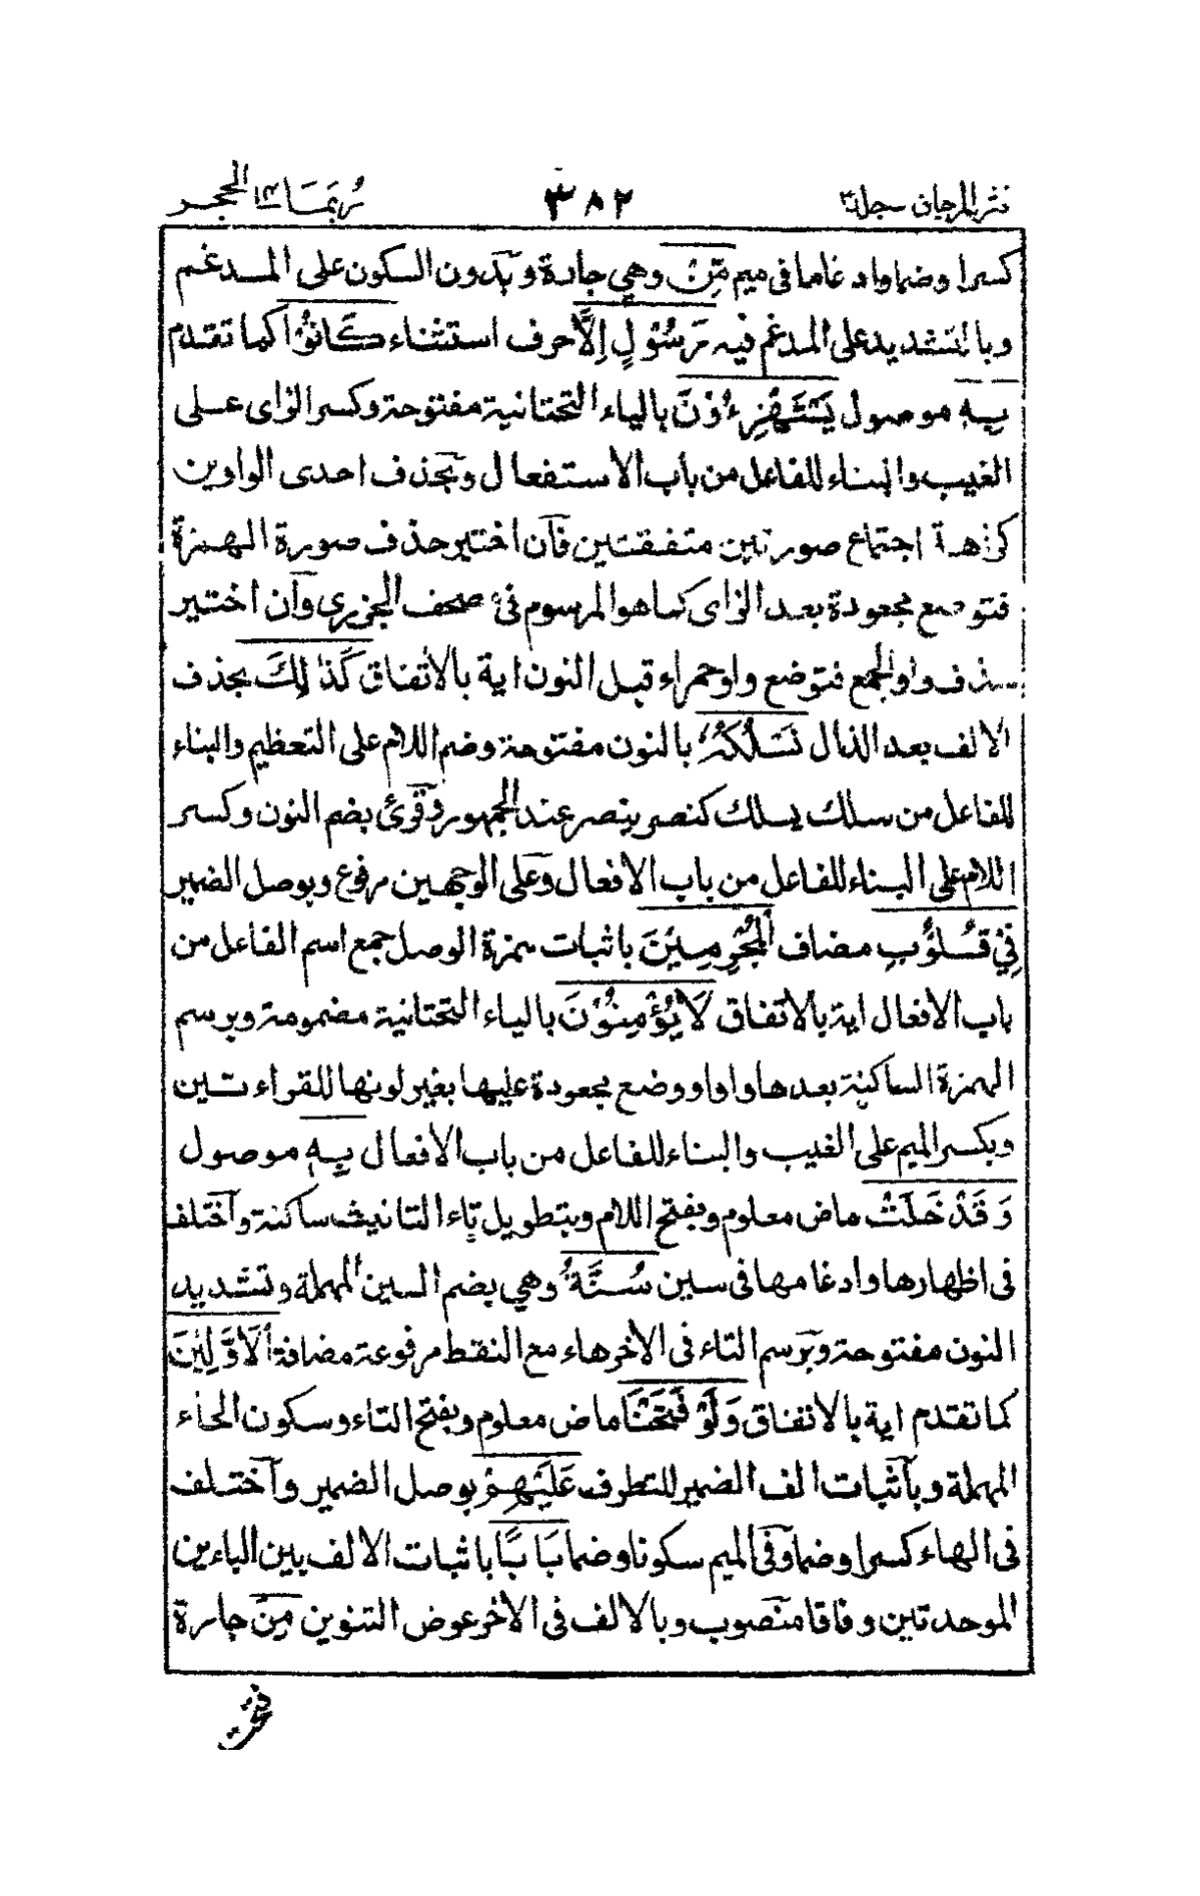 نثر المرجان جلد٣ ٣٨٢ رُبَمَا ١٤ الحجر
كسرا وضما وادغامها فى ميم مِّنْ وهي جارة وبدون السكون على المدغم
وبالتشديد على المدغم فيه رَسُوْلٍ اِلَّا حرف استثناء كَانُوْا كما تقدم
بِهٖ موصول يَسْتَهْزِءُوْنَ بالياء التحتانية مفتوحة وكسر الزاى على
الغيب والبناء للفاعل من باب الاستفعال وبحذف احدى الواوين
كراهة اجتماع صورتين متفقتين فان اختير حذف صورة الهمزة
فتوضع مجعودة بعد الزاى كما هو المرسوم فى مصحف الجزرى وان اختير
حذف واو الجمع فتوضع واو حمراء قبل النون اية بالاتفاق كَذٰلِكَ بحذف
الالف بعد الذال نَسْلُكُهٗ بالنون مفتوحة وضم اللام على التعظيم والبناء
للفاعل من سلك يسلك كنصر ينصر عند الجمهور وقرئ بضم النون وكسر
اللام على البناء للفاعل من باب الافعال وعلى الوجهين مرفوع وبوصل الضمير
فِىْ قُلُوْبِ مضاف الْمُجْرِمِيْنَ باثبات همزة الوصل جمع اسم الفاعل من
باب الافعال اية بالاتفاق لَا يُؤْمِنُوْنَ بالياء التحتانية مضمومة وبرسم
الهمزة الساكنة بعدها واوا ووضع مجعودة عليها بغير لونها للقراءتين
وبكسر الميم على الغيب والبناء للفاعل من باب الافعال بِهٖ موصول
وَقَدْ خَلَتْ ماض معلوم وبفتح اللام وبتطويل تاء التانيث ساكنة واختلف
فى اظهارها وادغامها فى سين سُنَّةُ وهي بضم السين المهملة وتشديد
النون مفتوحة وبرسم التاء فى الاخر هاء مع النقط مرفوعة مضافة الْاَوَّلِيْنَ
كما تقدم اية بالاتفاق وَلَوْ فَتَحْنَا ماض معلوم وبفتح التاء وسكون الحاء
المهملة وباثبات الف الضمير للتطرف عَلَيْهِمْ بوصل الضمير واختلف
فى الهاء كسرا وضما وفى الميم سكونا وضما بَابًا باثبات الالف بين البائين
الموحدتين وفاقا منصوب وبالالف فى الاخر عوض التنوين مِنْ جارة